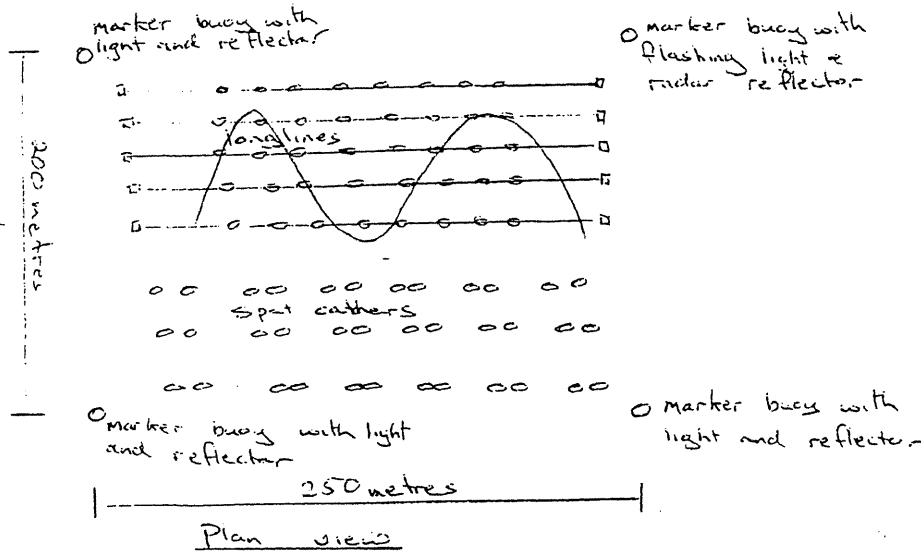 marker buoy with
light and reflector
marker buoy with
flashing light &
radar reflector
longlines
200 metres
Spat cathers
marker buoy with light
and reflector
marker buoy with
light and reflector
250 metres
Plan view